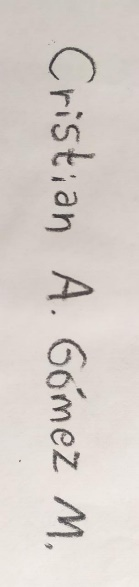 Cristian A. Gómez M.